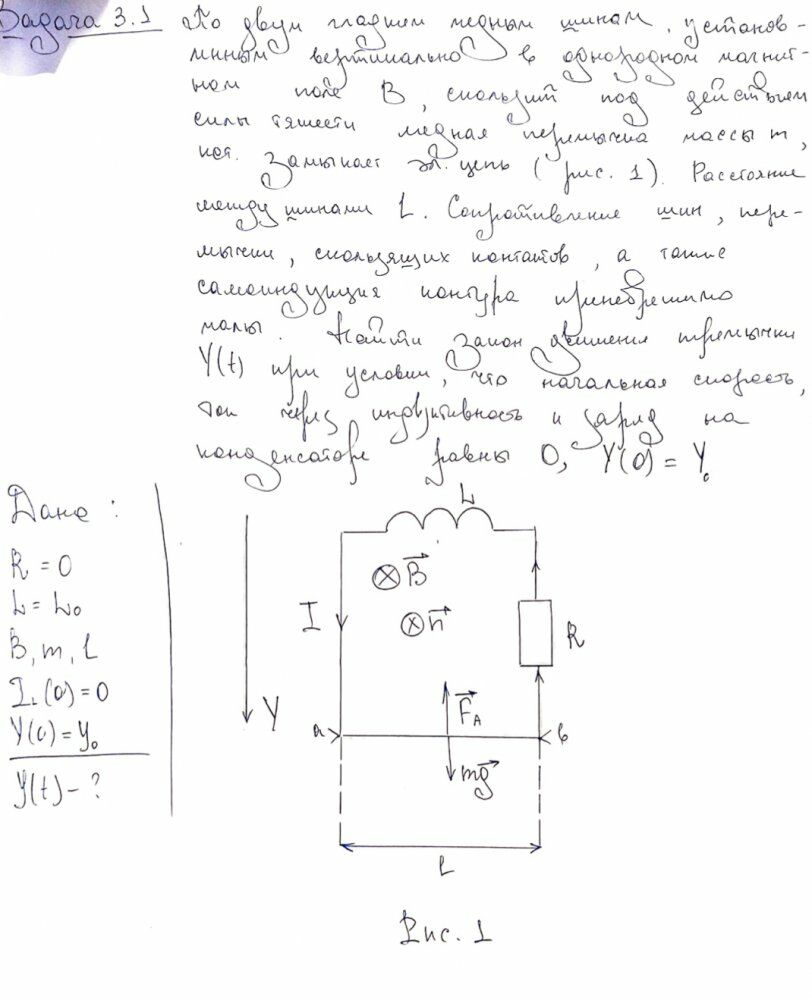 Задача 3.1 По двум гладким медным шинам, установ-
ленным вертикально в однородном магнит-
ном поле B, скользит под действием
силы тяжести медная перемычка массы m,
кот. замыкает эл. цепь (рис. 1). Расстояние
между шинами L. Сопротивление шин, пере-
мычки, скользящих контактов, а также
самоиндукция контура пренебрежимо
малы. Найти закон движения перемычки
Y(t) при условии, что начальная скорость,
ток через индуктивность и заряд на
конденсаторе равны 0, Y(0) = Y₀
Дано:
R = 0
L = L₀
B, m, L
I_L(0) = 0
Y(0) = Y₀
Y(t) - ?
L
⊗B⃗
I
⊗n⃗
R
Y
F⃗_A
a
b
mg⃗
L
Рис. 1